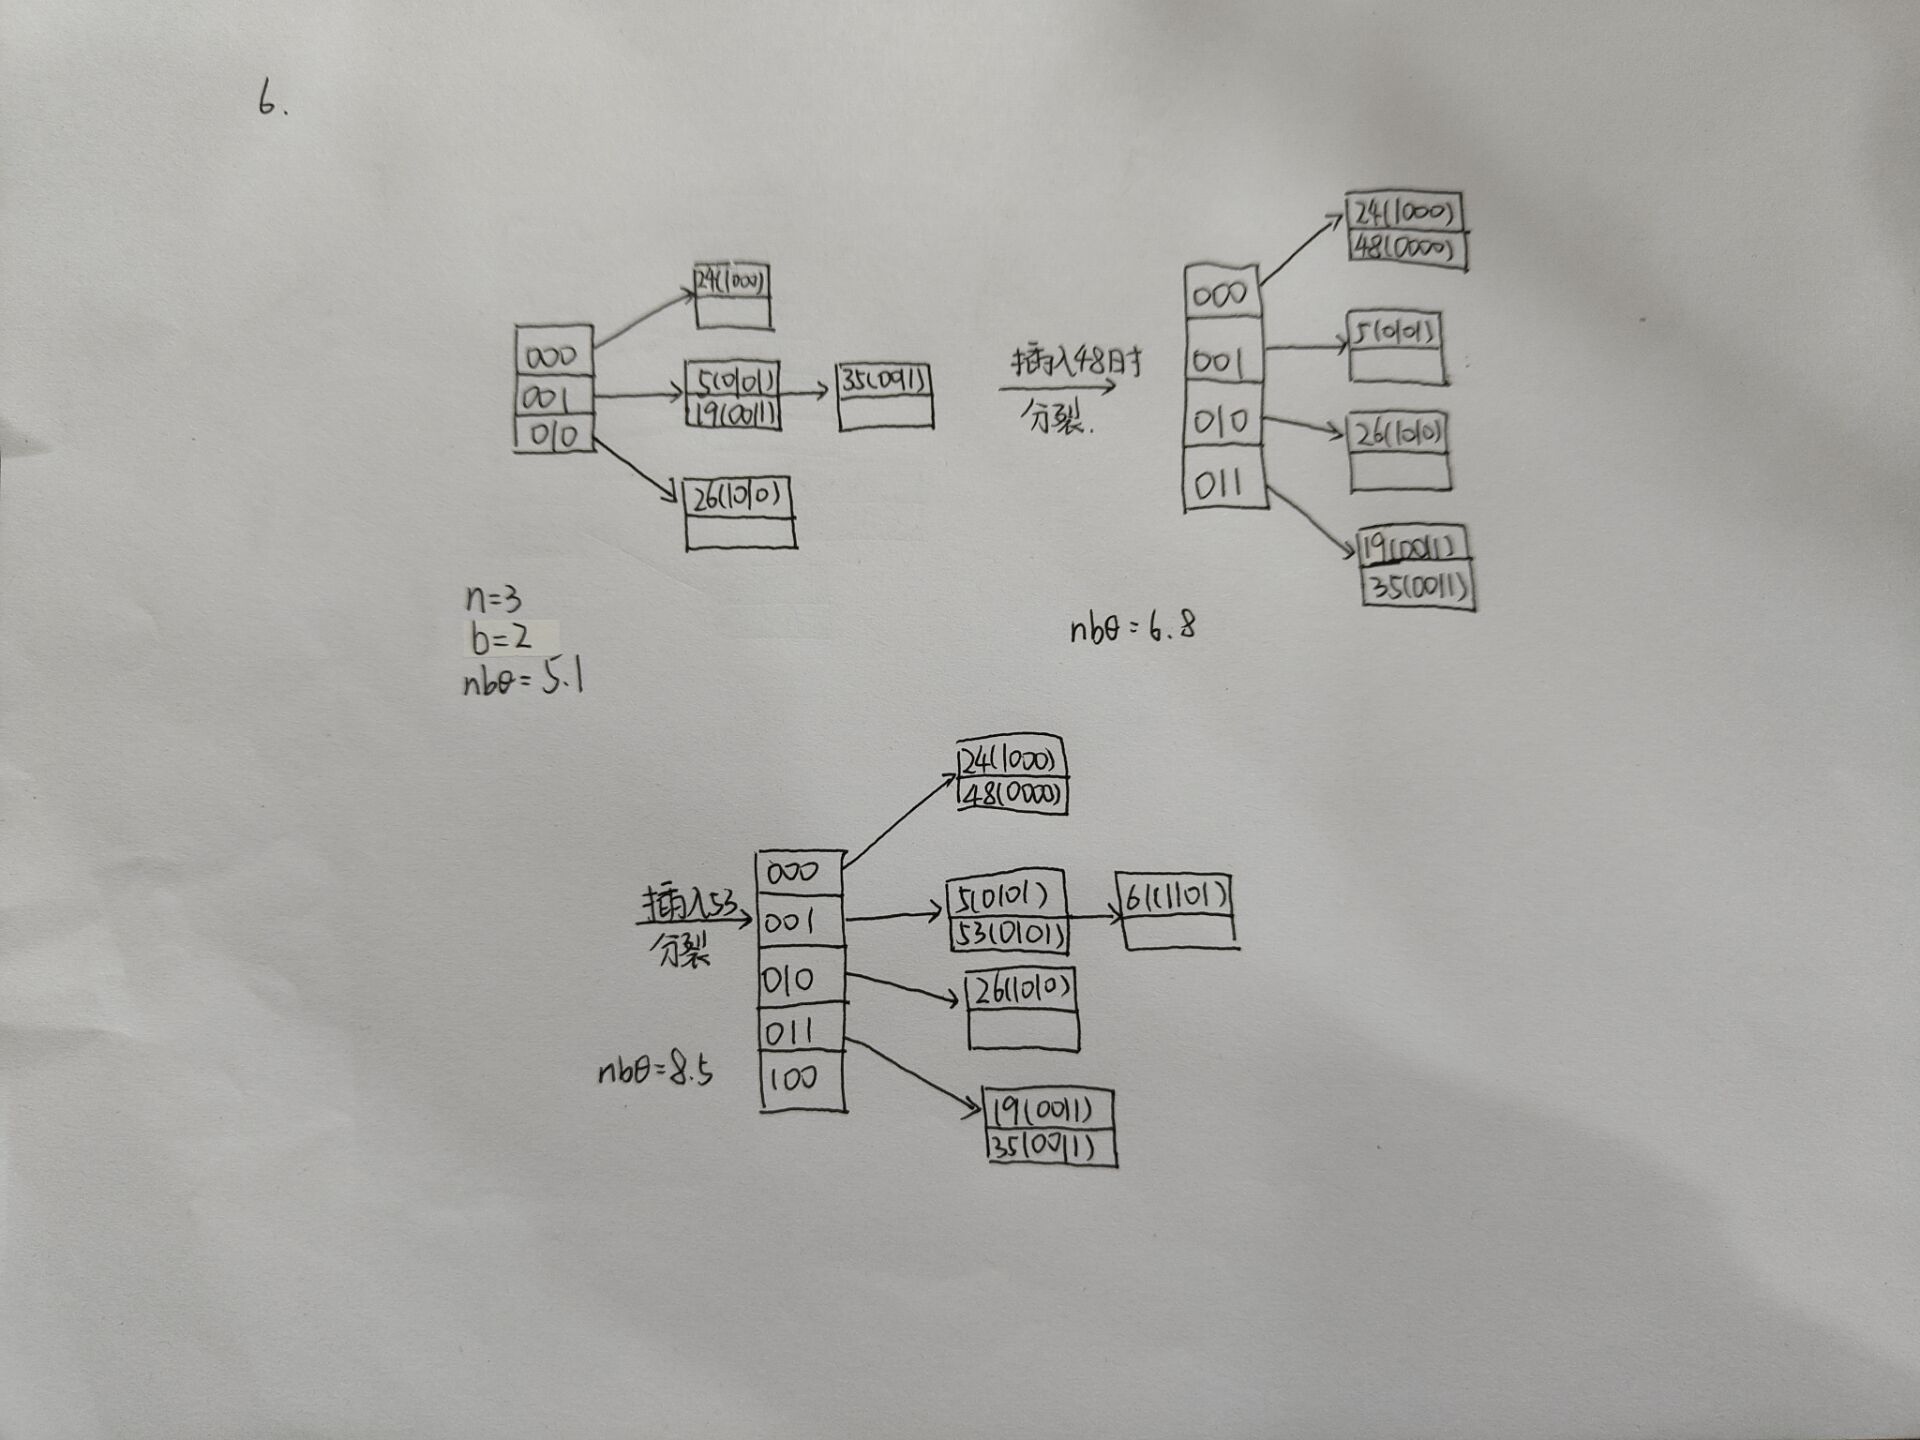 6.
24(1000)
000
001
010
5(0101)
19(0011)
35(0011)
26(1010)
n=3
b=2
nbθ=5.1
插入48时
分裂.
000
001
010
011
24(1000)
48(0000)
5(0101)
26(1010)
19(0011)
35(0011)
nbθ=6.8
插入53
分裂
000
001
010
011
100
24(1000)
48(0000)
5(0101)
53(0101)
61(1101)
26(1010)
19(0011)
35(0011)
nbθ=8.5